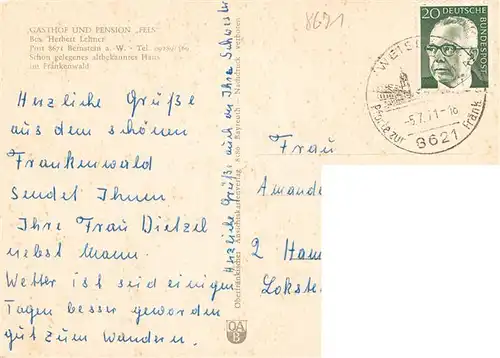 GASTHOF UND PENSION „FELS"
Bes. Herbert Leitner
Post 8671 Bernstein a. W. - Tel.
Schön gelegenes altbekanntes Haus
im Frankenwald
Herzliche Grüße
aus dem schönen
Frankenwald
Sendet Ihnen
Ihre Frau Dietzel
nebst Mann.
Wetter ist seid einigen
Tagen besser geworden
gut zum Wandern.
Herzliche Grüße auch an Ihre Schwester
Oberfränkischer Ansichtskartenverlag 8580 Bayreuth Nachdruck verboten
OA
B
8621
20 DEUTSCHE
BUNDESPOST
-5.7.71-18
Pforte zum Frank
8621
Frau
Amande
2 Ham
Lokste